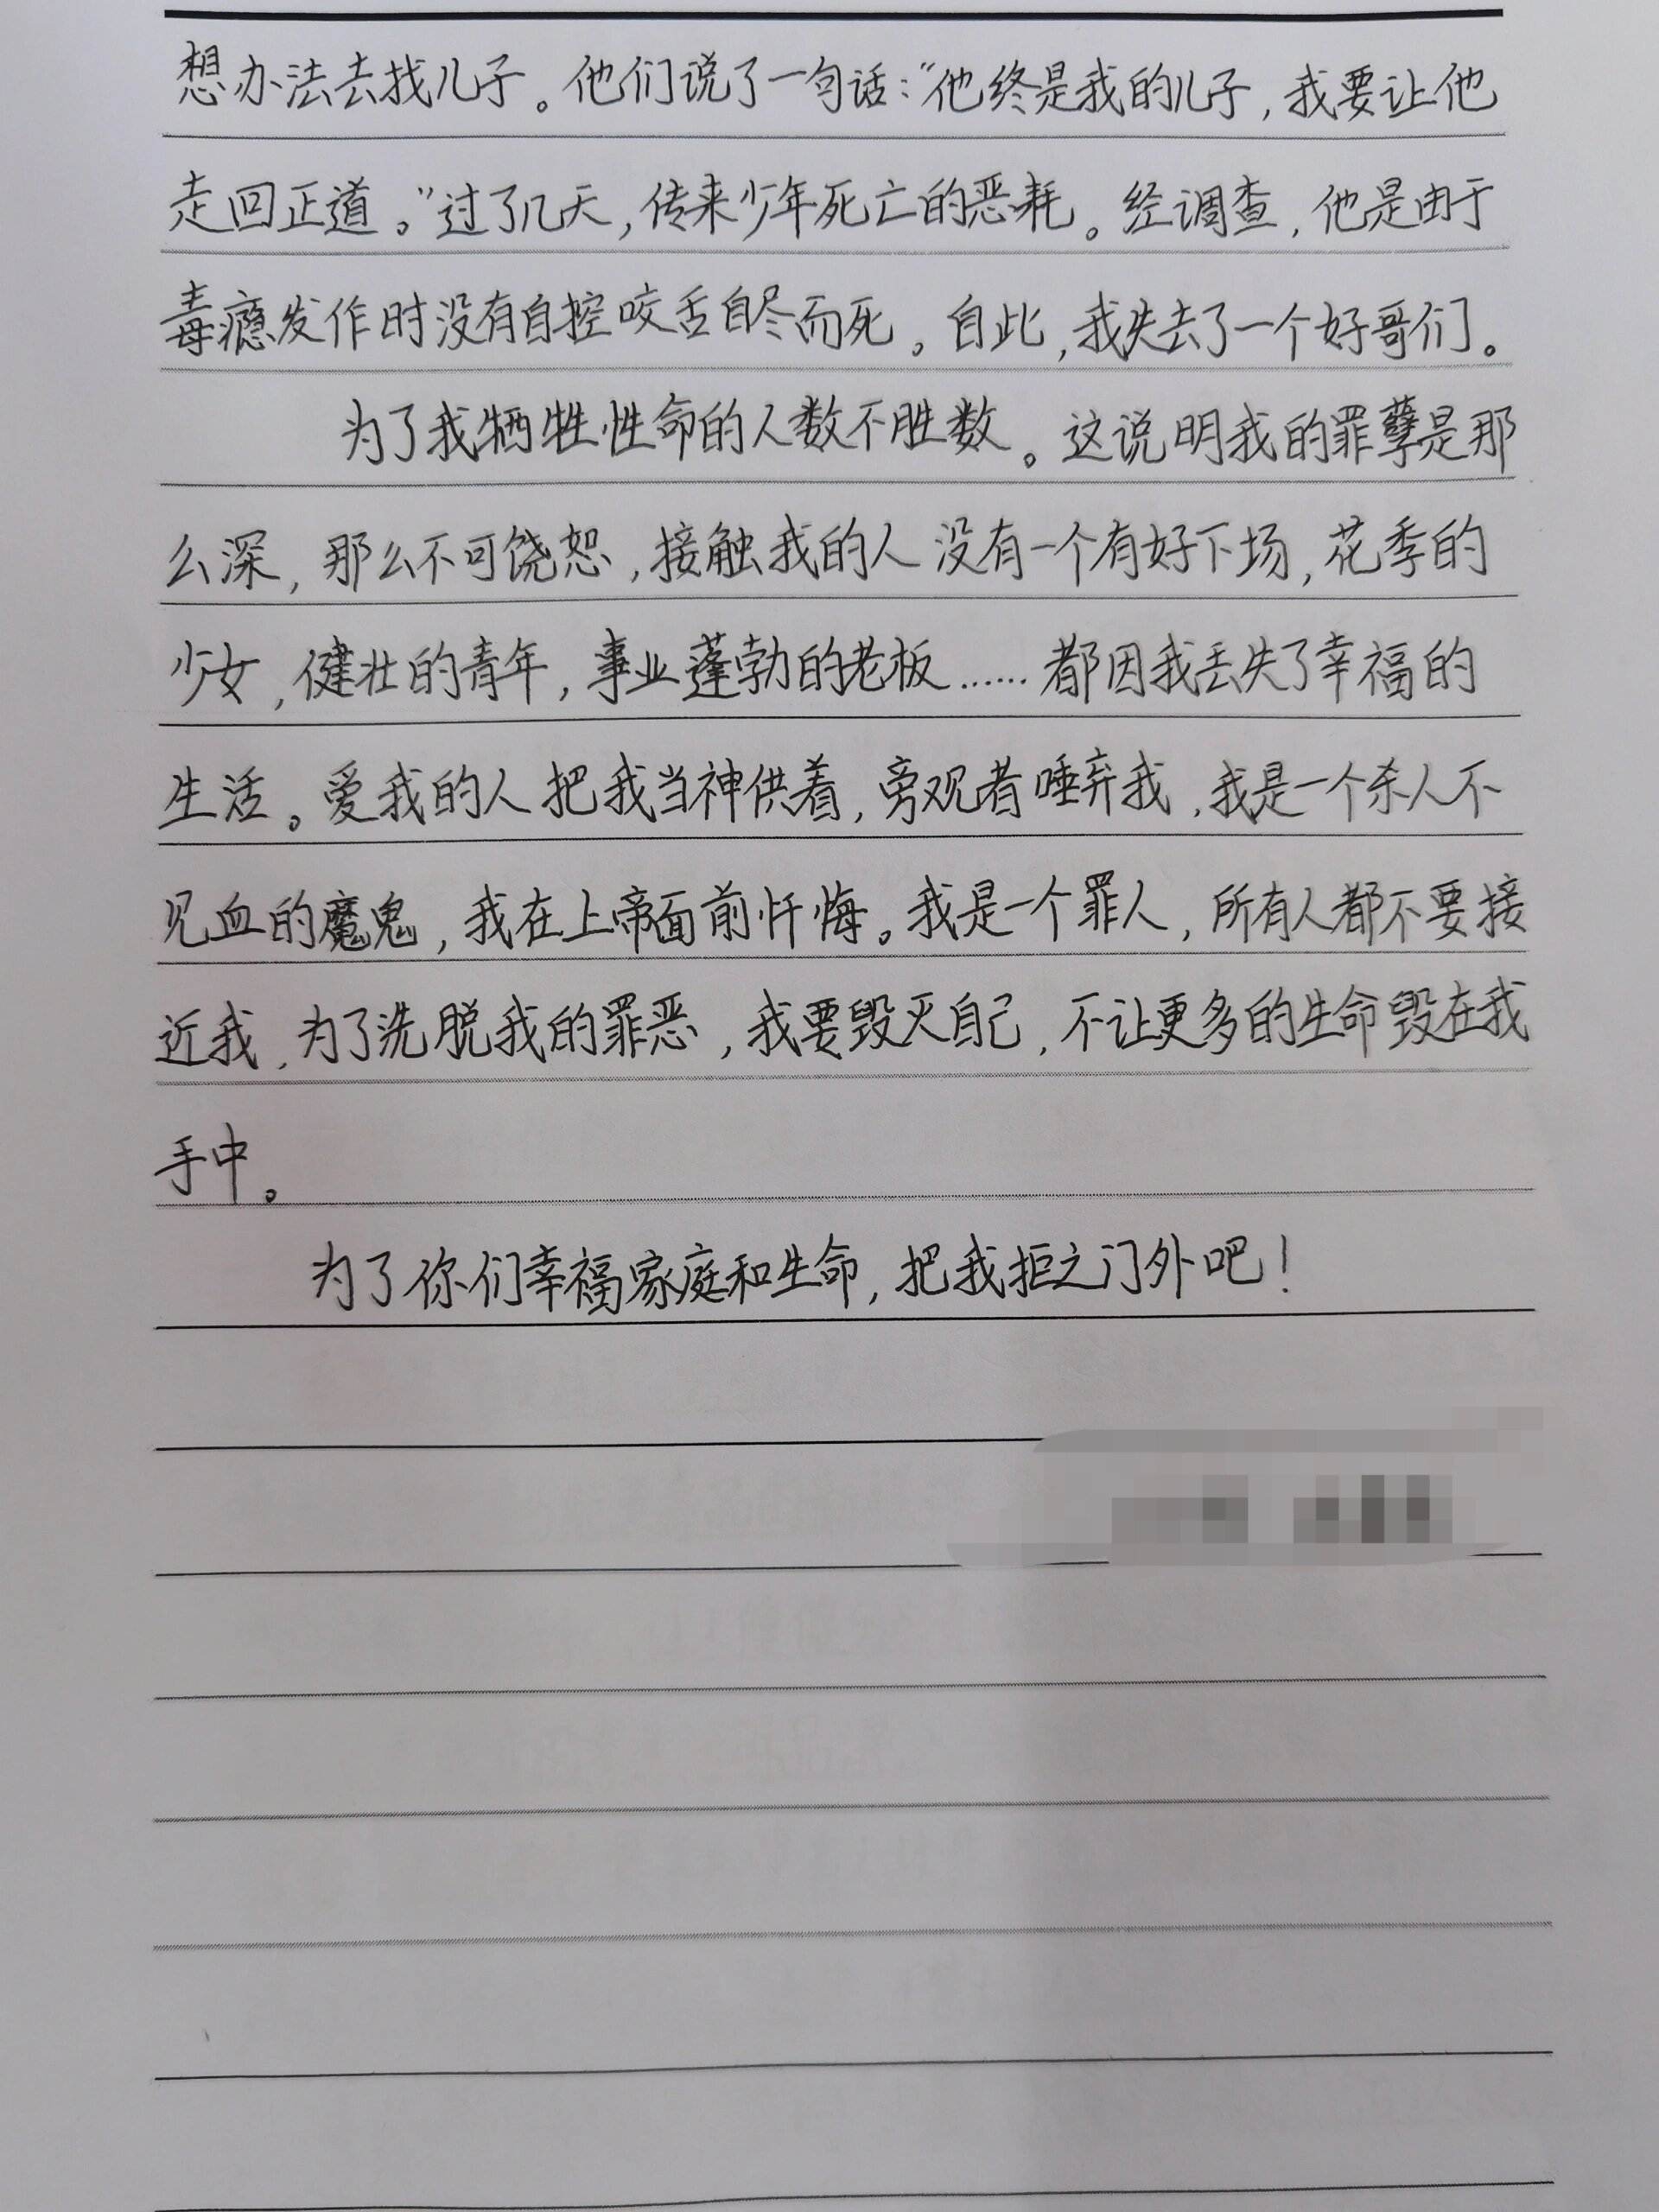 想办法去找儿子。他们说了一句话：“他终是我的儿子，我要让他
走回正道。”过了几天，传来少年死亡的恶耗。经调查，他是由于
毒瘾发作时没有自控咬舌自尽而死。自此，我失去了一个好哥们。
为了我牺牲性命的人数不胜数。这说明我的罪孽是那
么深，那么不可饶恕，接触我的人没有一个有好下场，花季的
少女，健壮的青年，事业蓬勃的老板……都因我丢失了幸福的
生活。爱我的人把我当神供着，旁观者唾弃我，我是一个杀人不
见血的魔鬼，我在上帝面前忏悔。我是一个罪人，所有人都不要接
近我，为了洗脱我的罪恶，我要毁灭自己，不让更多的生命毁在我
手中。
为了你们幸福家庭和生命，把我拒之门外吧！